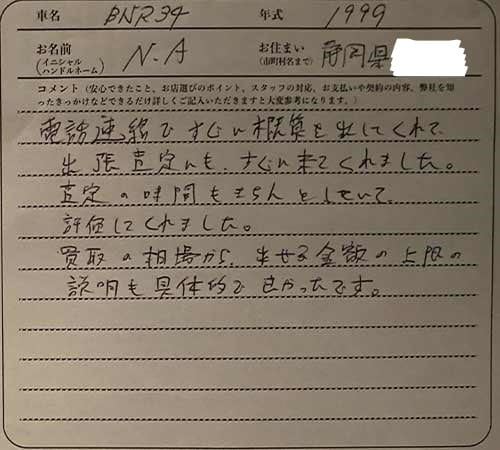 車名 BNR34 年式 1999
お名前 N.A お住まい 静岡県
(イニシャル ハンドルネーム) (市町村名まで)
コメント(安心できたこと、お店選びのポイント、スタッフの対応、お支払いや契約の内容、弊社を知
ったきっかけなどできるだけ詳しくご記入いただきますと大変参考になります。)
電話連絡ですぐに概算を出してくれて、
出張査定にも、すぐに来てくれました。
査定の時間もきちんとしていて、
評価してくれました。
買取の相場から、出せる金額の上限の
説明も具体的で良かったです。